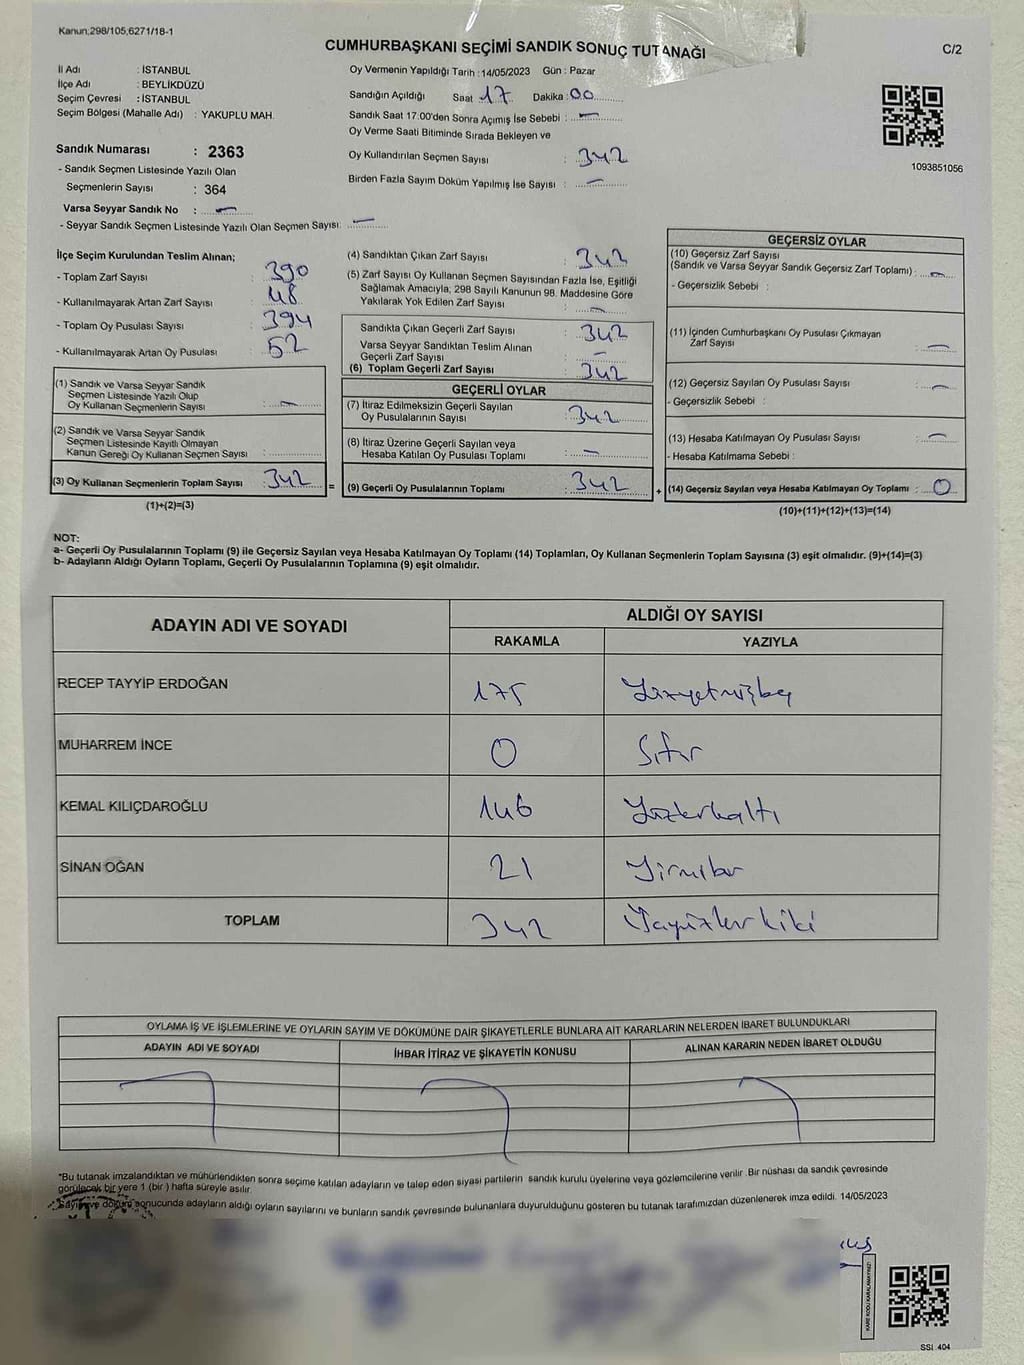 Kanun;298/105,6271/18-1
CUMHURBAŞKANI SEÇİMİ SANDIK SONUÇ TUTANAĞI
C/2
İl Adı : İSTANBUL
İlçe Adı : BEYLİKDÜZÜ
Seçim Çevresi : İSTANBUL
Seçim Bölgesi (Mahalle Adı) : YAKUPLU MAH.
Sandık Numarası : 2363
- Sandık Seçmen Listesinde Yazılı Olan
Seçmenlerin Sayısı : 364
Varsa Seyyar Sandık No : —
- Seyyar Sandık Seçmen Listesinde Yazılı Olan Seçmen Sayısı: —
Oy Vermenin Yapıldığı Tarih : 14/05/2023 Gün : Pazar
Sandığın Açıldığı Saat 17 Dakika : 00
Sandık Saat 17:00'den Sonra Açımış İse Sebebi : —
Oy Verme Saati Bitiminde Sırada Bekleyen ve
Oy Kullandırılan Seçmen Sayısı : 342
Birden Fazla Sayım Döküm Yapılmış İse Sayısı : —
1093851056
İlçe Seçim Kurulundan Teslim Alınan;
- Toplam Zarf Sayısı : 390
- Kullanılmayarak Artan Zarf Sayısı : 48
- Toplam Oy Pusulası Sayısı : 394
- Kullanılmayarak Artan Oy Pusulası : 52
(1) Sandık ve Varsa Seyyar Sandık
Seçmen Listesinde Yazılı Olup
Oy Kullanan Seçmenlerin Sayısı : —
(2) Sandık ve Varsa Seyyar Sandık
Seçmen Listesinde Kayıtlı Olmayan
Kanun Gereği Oy Kullanan Seçmen Sayısı :
(3) Oy Kullanan Seçmenlerin Toplam Sayısı : 342 =
(1)+(2)=(3)
(4) Sandıktan Çıkan Zarf Sayısı : 342
(5) Zarf Sayısı Oy Kullanan Seçmen Sayısından Fazla İse, Eşitliği
Sağlamak Amacıyla; 298 Sayılı Kanunun 98. Maddesine Göre
Yakılarak Yok Edilen Zarf Sayısı : —
Sandıkta Çıkan Geçerli Zarf Sayısı : 342
Varsa Seyyar Sandıktan Teslim Alınan
Geçerli Zarf Sayısı : —
(6) Toplam Geçerli Zarf Sayısı : 342
GEÇERLİ OYLAR
(7) İtiraz Edilmeksizin Geçerli Sayılan
Oy Pusulalarının Sayısı : 342
(8) İtiraz Üzerine Geçerli Sayılan veya
Hesaba Katılan Oy Pusulası Toplamı : —
(9) Geçerli Oy Pusulalarının Toplamı : 342 +
GEÇERSİZ OYLAR
(10) Geçersiz Zarf Sayısı
(Sandık ve Varsa Seyyar Sandık Geçersiz Zarf Toplamı) : —
- Geçersizlik Sebebi :
(11) İçinden Cumhurbaşkanı Oy Pusulası Çıkmayan
Zarf Sayısı : —
(12) Geçersiz Sayılan Oy Pusulası Sayısı : —
- Geçersizlik Sebebi :
(13) Hesaba Katılmayan Oy Pusulası Sayısı : —
- Hesaba Katılmama Sebebi :
(14) Geçersiz Sayılan veya Hesaba Katılmayan Oy Toplamı : 0
(10)+(11)+(12)+(13)=(14)
NOT:
a- Geçerli Oy Pusulalarının Toplamı (9) ile Geçersiz Sayılan veya Hesaba Katılmayan Oy Toplamı (14) Toplamları, Oy Kullanan Seçmenlerin Toplam Sayısına (3) eşit olmalıdır. (9)+(14)=(3)
b- Adayların Aldığı Oyların Toplamı, Geçerli Oy Pusulalarının Toplamına (9) eşit olmalıdır.
ADAYIN ADI VE SOYADI
ALDIĞI OY SAYISI
RAKAMLA YAZIYLA
RECEP TAYYİP ERDOĞAN 175 Yüzyetmişbeş
MUHARREM İNCE 0 Sıfır
KEMAL KILIÇDAROĞLU 146 Yüzkırkaltı
SİNAN OĞAN 21 Yirmibir
TOPLAM 342
OYLAMA İŞ VE İŞLEMLERİNE VE OYLARIN SAYIM VE DÖKÜMÜNE DAİR ŞİKAYETLERLE BUNLARA AİT KARARLARIN NELERDEN İBARET BULUNDUKLARI
ADAYIN ADI VE SOYADI İHBAR İTİRAZ VE ŞİKAYETİN KONUSU ALINAN KARARIN NEDEN İBARET OLDUĞU
*Bu tutanak imzalandıktan ve mühürlendikten sonra seçime katılan adayların ve talep eden siyasi partilerin sandık kurulu üyelerine veya gözlemcilerine verilir. Bir nüshası da sandık çevresinde
görülecek bir yere 1 (bir) hafta süreyle asılır.
Sayım ve döküm sonucunda adayların aldığı oyların sayılarını ve bunların sandık çevresinde bulunanlara duyurulduğunu gösteren bu tutanak tarafımızdan düzenlenerek imza edildi. 14/05/2023
KARE KODU KARALAMAYINIZ!
SSI 404